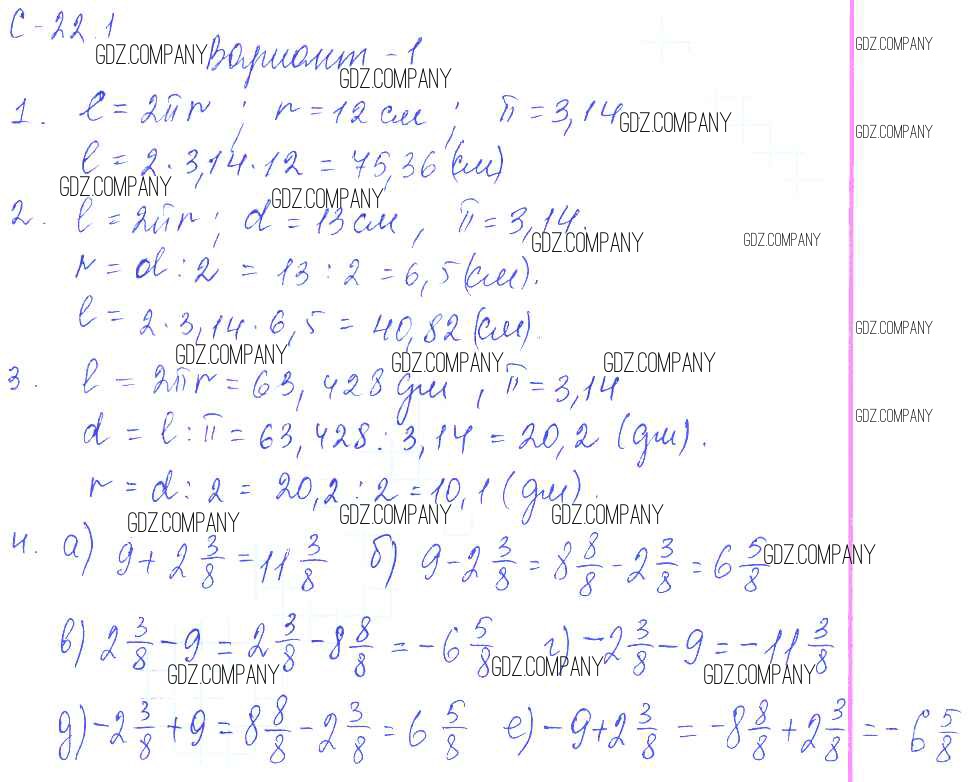 С-22.1
GDZ.COMPANY Вариант-1 GDZ.COMPANY
GDZ.COMPANY
1. l = 2πr ; r = 12 см ; π = 3,14 GDZ.COMPANY
GDZ.COMPANY
l = 2·3,14·12 = 75,36 (см)
GDZ.COMPANY GDZ.COMPANY
2. l = 2πr ; d = 13 см , π = 3,14.
GDZ.COMPANY GDZ.COMPANY
r = d : 2 = 13 : 2 = 6,5 (см).
l = 2·3,14·6,5 = 40,82 (см).
GDZ.COMPANY
GDZ.COMPANY GDZ.COMPANY GDZ.COMPANY
3. l = 2πr = 63,428 дм , π = 3,14
GDZ.COMPANY
d = l : π = 63,428 : 3,14 = 20,2 (дм).
r = d : 2 = 20,2 : 2 = 10,1 (дм).
GDZ.COMPANY GDZ.COMPANY GDZ.COMPANY
4. а) 9 + 2 3/8 = 11 3/8 б) 9 - 2 3/8 = 8 8/8 - 2 3/8 = 6 5/8 GDZ.COMPANY
в) 2 3/8 - 9 = 2 3/8 - 8 8/8 = -6 5/8 г) -2 3/8 - 9 = -11 3/8
GDZ.COMPANY GDZ.COMPANY GDZ.COMPANY
д) -2 3/8 + 9 = 8 8/8 - 2 3/8 = 6 5/8 е) -9 + 2 3/8 = -8 8/8 + 2 3/8 = -6 5/8